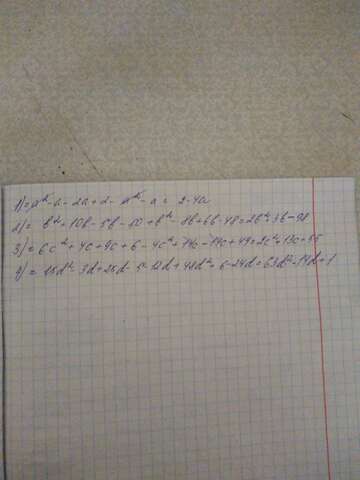 1) = a² - a - 2a + 2 - a² - a = 2 - 4a
2) = b² + 10b - 5b - 50 + b² - 8b + 6b - 48 = 2b² + 3b - 98
3) = 6c² + 4c + 9c + 6 - 4c² + 14c - 14c + 49 = 2c² + 13c + 55
4) = 15d² - 3d + 25d - 5 - 12d + 48d² + 6 - 24d = 63d² - 14d + 1